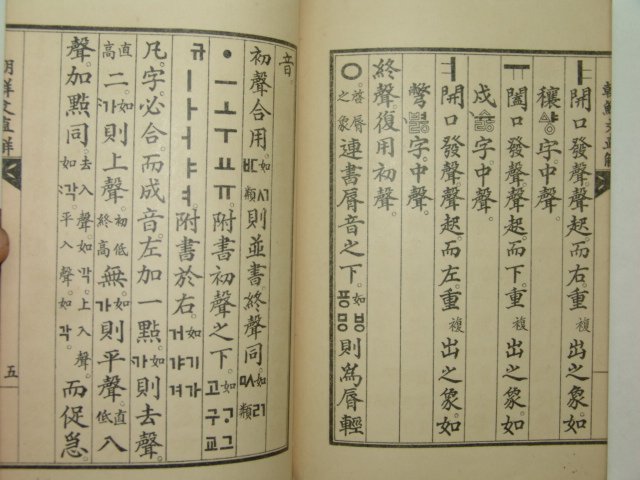 ㅑ開口發聲。聲起而右。重複出之象。如
穰샹字。中聲。
ㅠ闔口發聲。聲起而下。重複出之象。如
戌字。中聲。
ㅕ開口發聲。聲起而左。重複出之象。如
彆字。中聲。
終聲。復用初聲。
○。啓脣之象連書脣音之下。如ㅸㆄㅱ則爲脣輕
音。
初聲合用。如類則並書終聲同。如類
ㆍㅡㅗㅜㅛㅠ。附書初聲之下。如ᄀᆞ그고구교
규ㅣㅏㅓㅑㅕ。附書於右。如기가거갸겨
凡字。必合。而成音。左加一點。如가則去聲。
直高二。如가則上聲。初低終高無。如가則平聲。直低入
聲。加點同。去入聲如각。上入聲。如각。平入聲。如각。而促急。
五